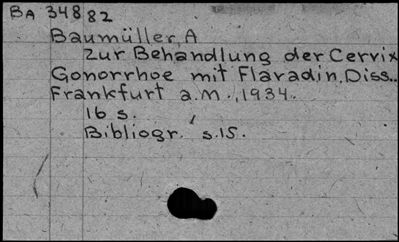 BA 34882
Baumüller, A
Zur Behandlung der Cervix
Gonorrhoe mit Flaradin. Diss..
Frankfurt a.M., 1934.
16 s.
Bibliogr. s.15.